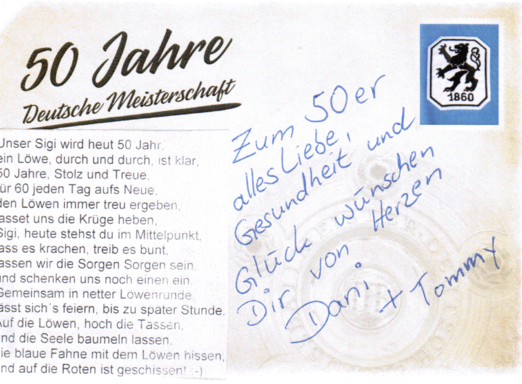 50 Jahre
Deutsche Meisterschaft
1860
Unser Sigi wird heut 50 Jahr,
ein Löwe, durch und durch, ist klar,
50 Jahre, Stolz und Treue,
für 60 jeden Tag aufs Neue,
den Löwen immer treu ergeben,
lasset uns die Krüge heben,
Sigi, heute stehst du im Mittelpunkt,
lass es krachen, treib es bunt,
lassen wir die Sorgen Sorgen sein,
und schenken uns noch einen ein.
Gemeinsam in netter Löwenrunde,
lässt sich´s feiern, bis zu später Stunde.
Auf die Löwen, hoch die Tassen,
und die Seele baumeln lassen.
die blaue Fahne mit dem Löwen hissen,
und auf die Roten ist geschissen! :-)
Zum 50er
alles Liebe,
Gesundheit und
Glück wünschen
Dir von Herzen
Dani + Tommy